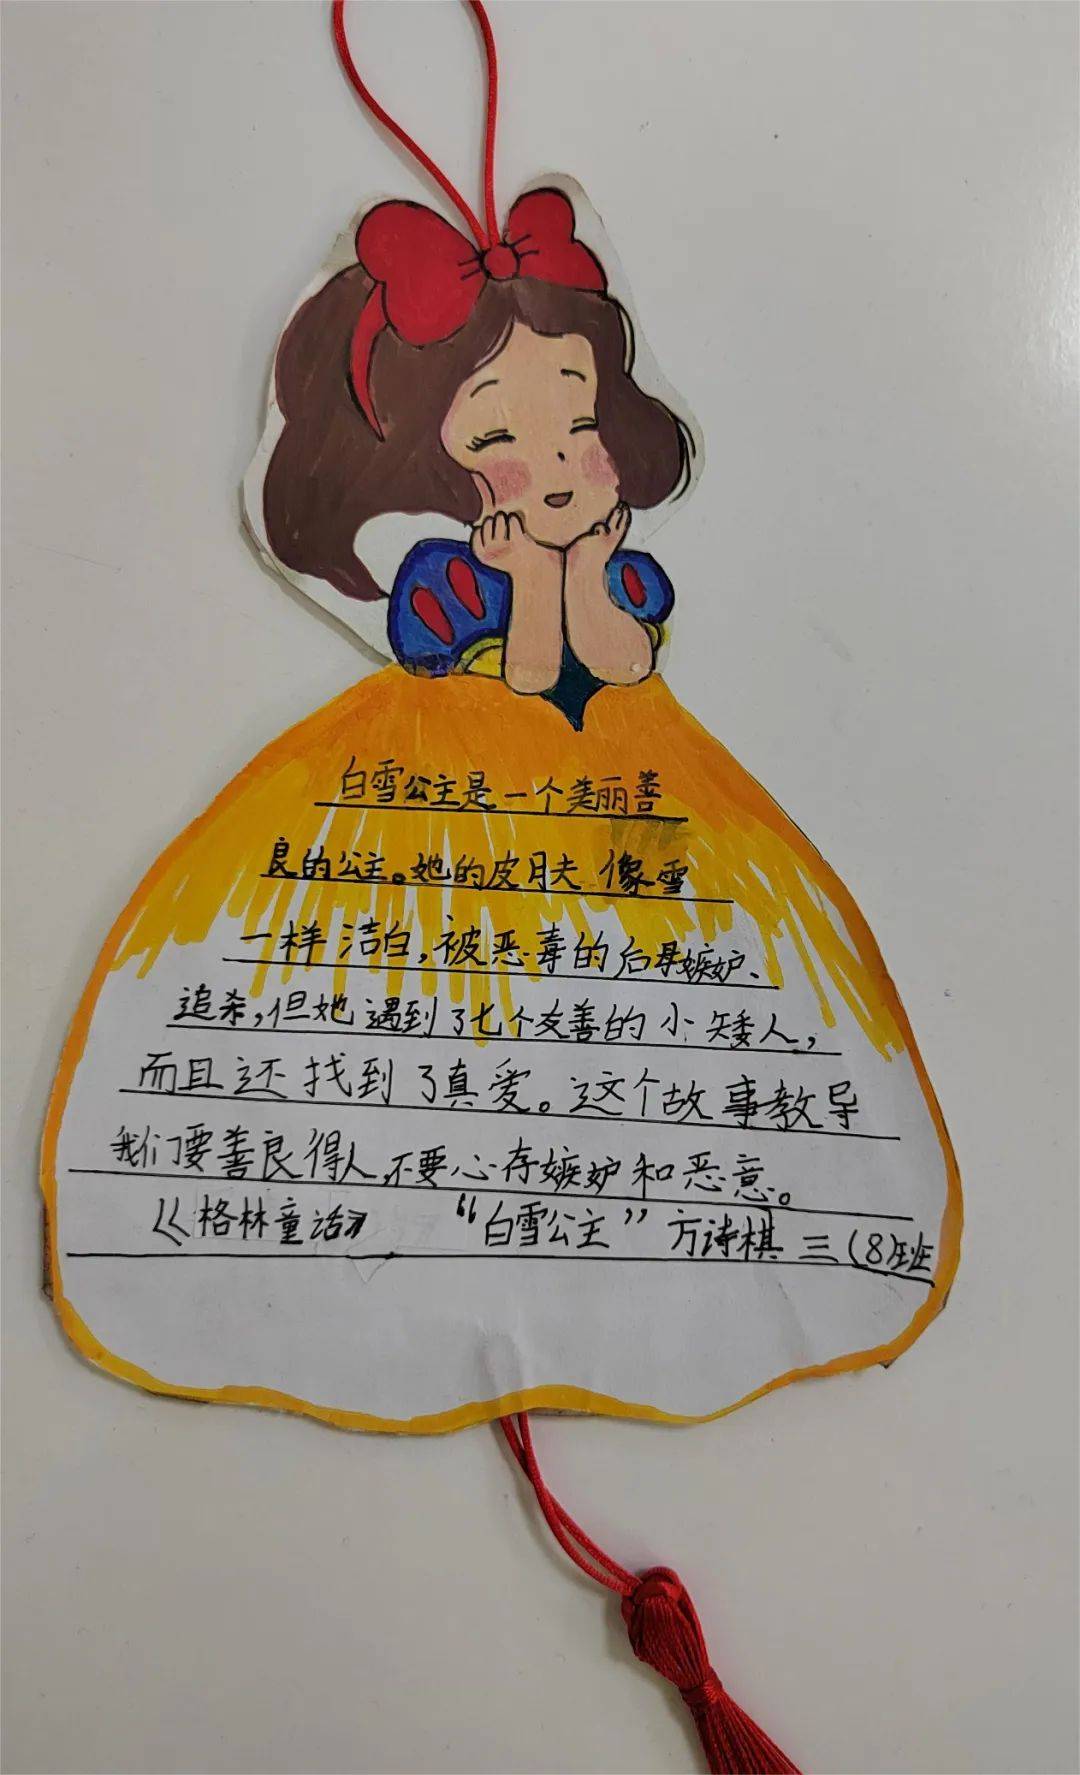 白雪公主是一个美丽善
良的公主。她的皮肤像雪
一样洁白，被恶毒的后母嫉妒、
追杀，但她遇到了七个友善的小矮人，
而且还找到了真爱。这个故事教导
我们要善良得人，不要心存嫉妒和恶意。
《格林童话》 “白雪公主” 方诗棋 三（8）班